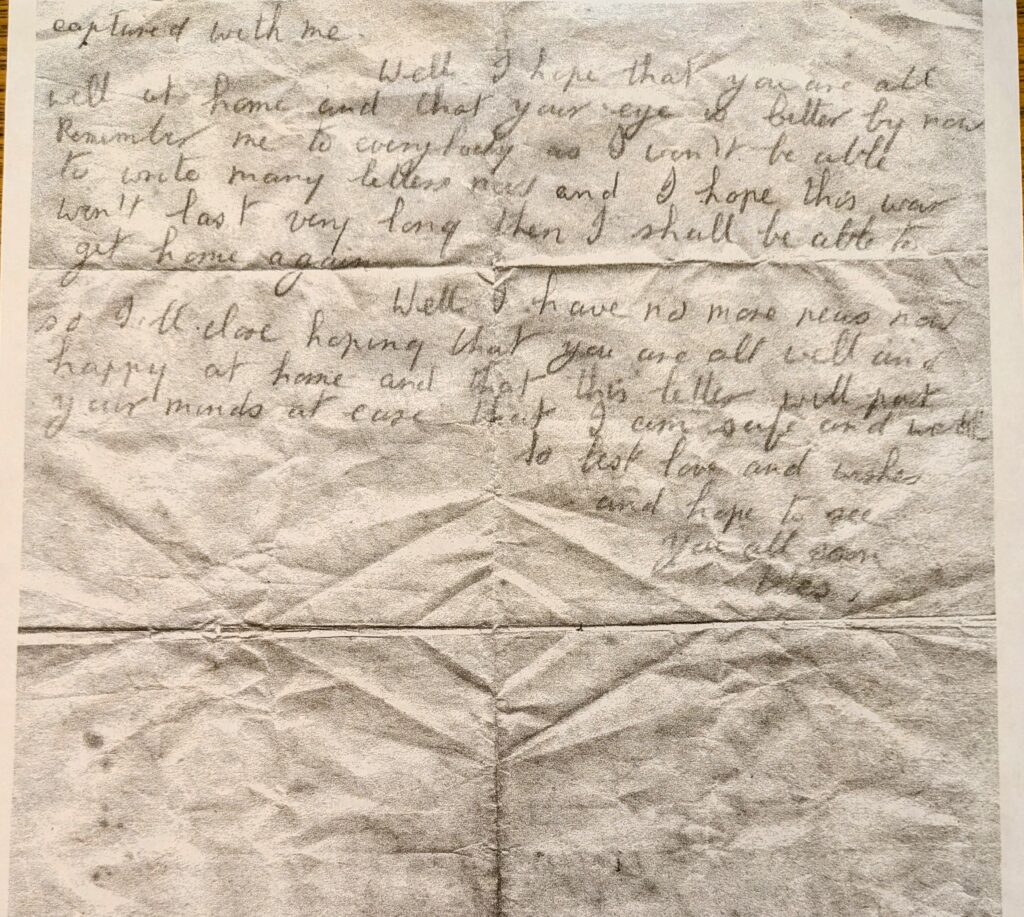 captured with me.
Well I hope that you are all
well at home and that your eye is better by now
Remember me to everybody as I won't be able
to write many letters now and I hope this war
won't last very long then I shall be able to
get home again
Well I have no more news now
so I'll close hoping that you are all well and
happy at home and that this letter will put
your minds at ease that I am safe and well
So best love and wishes
and hope to see
you all soon